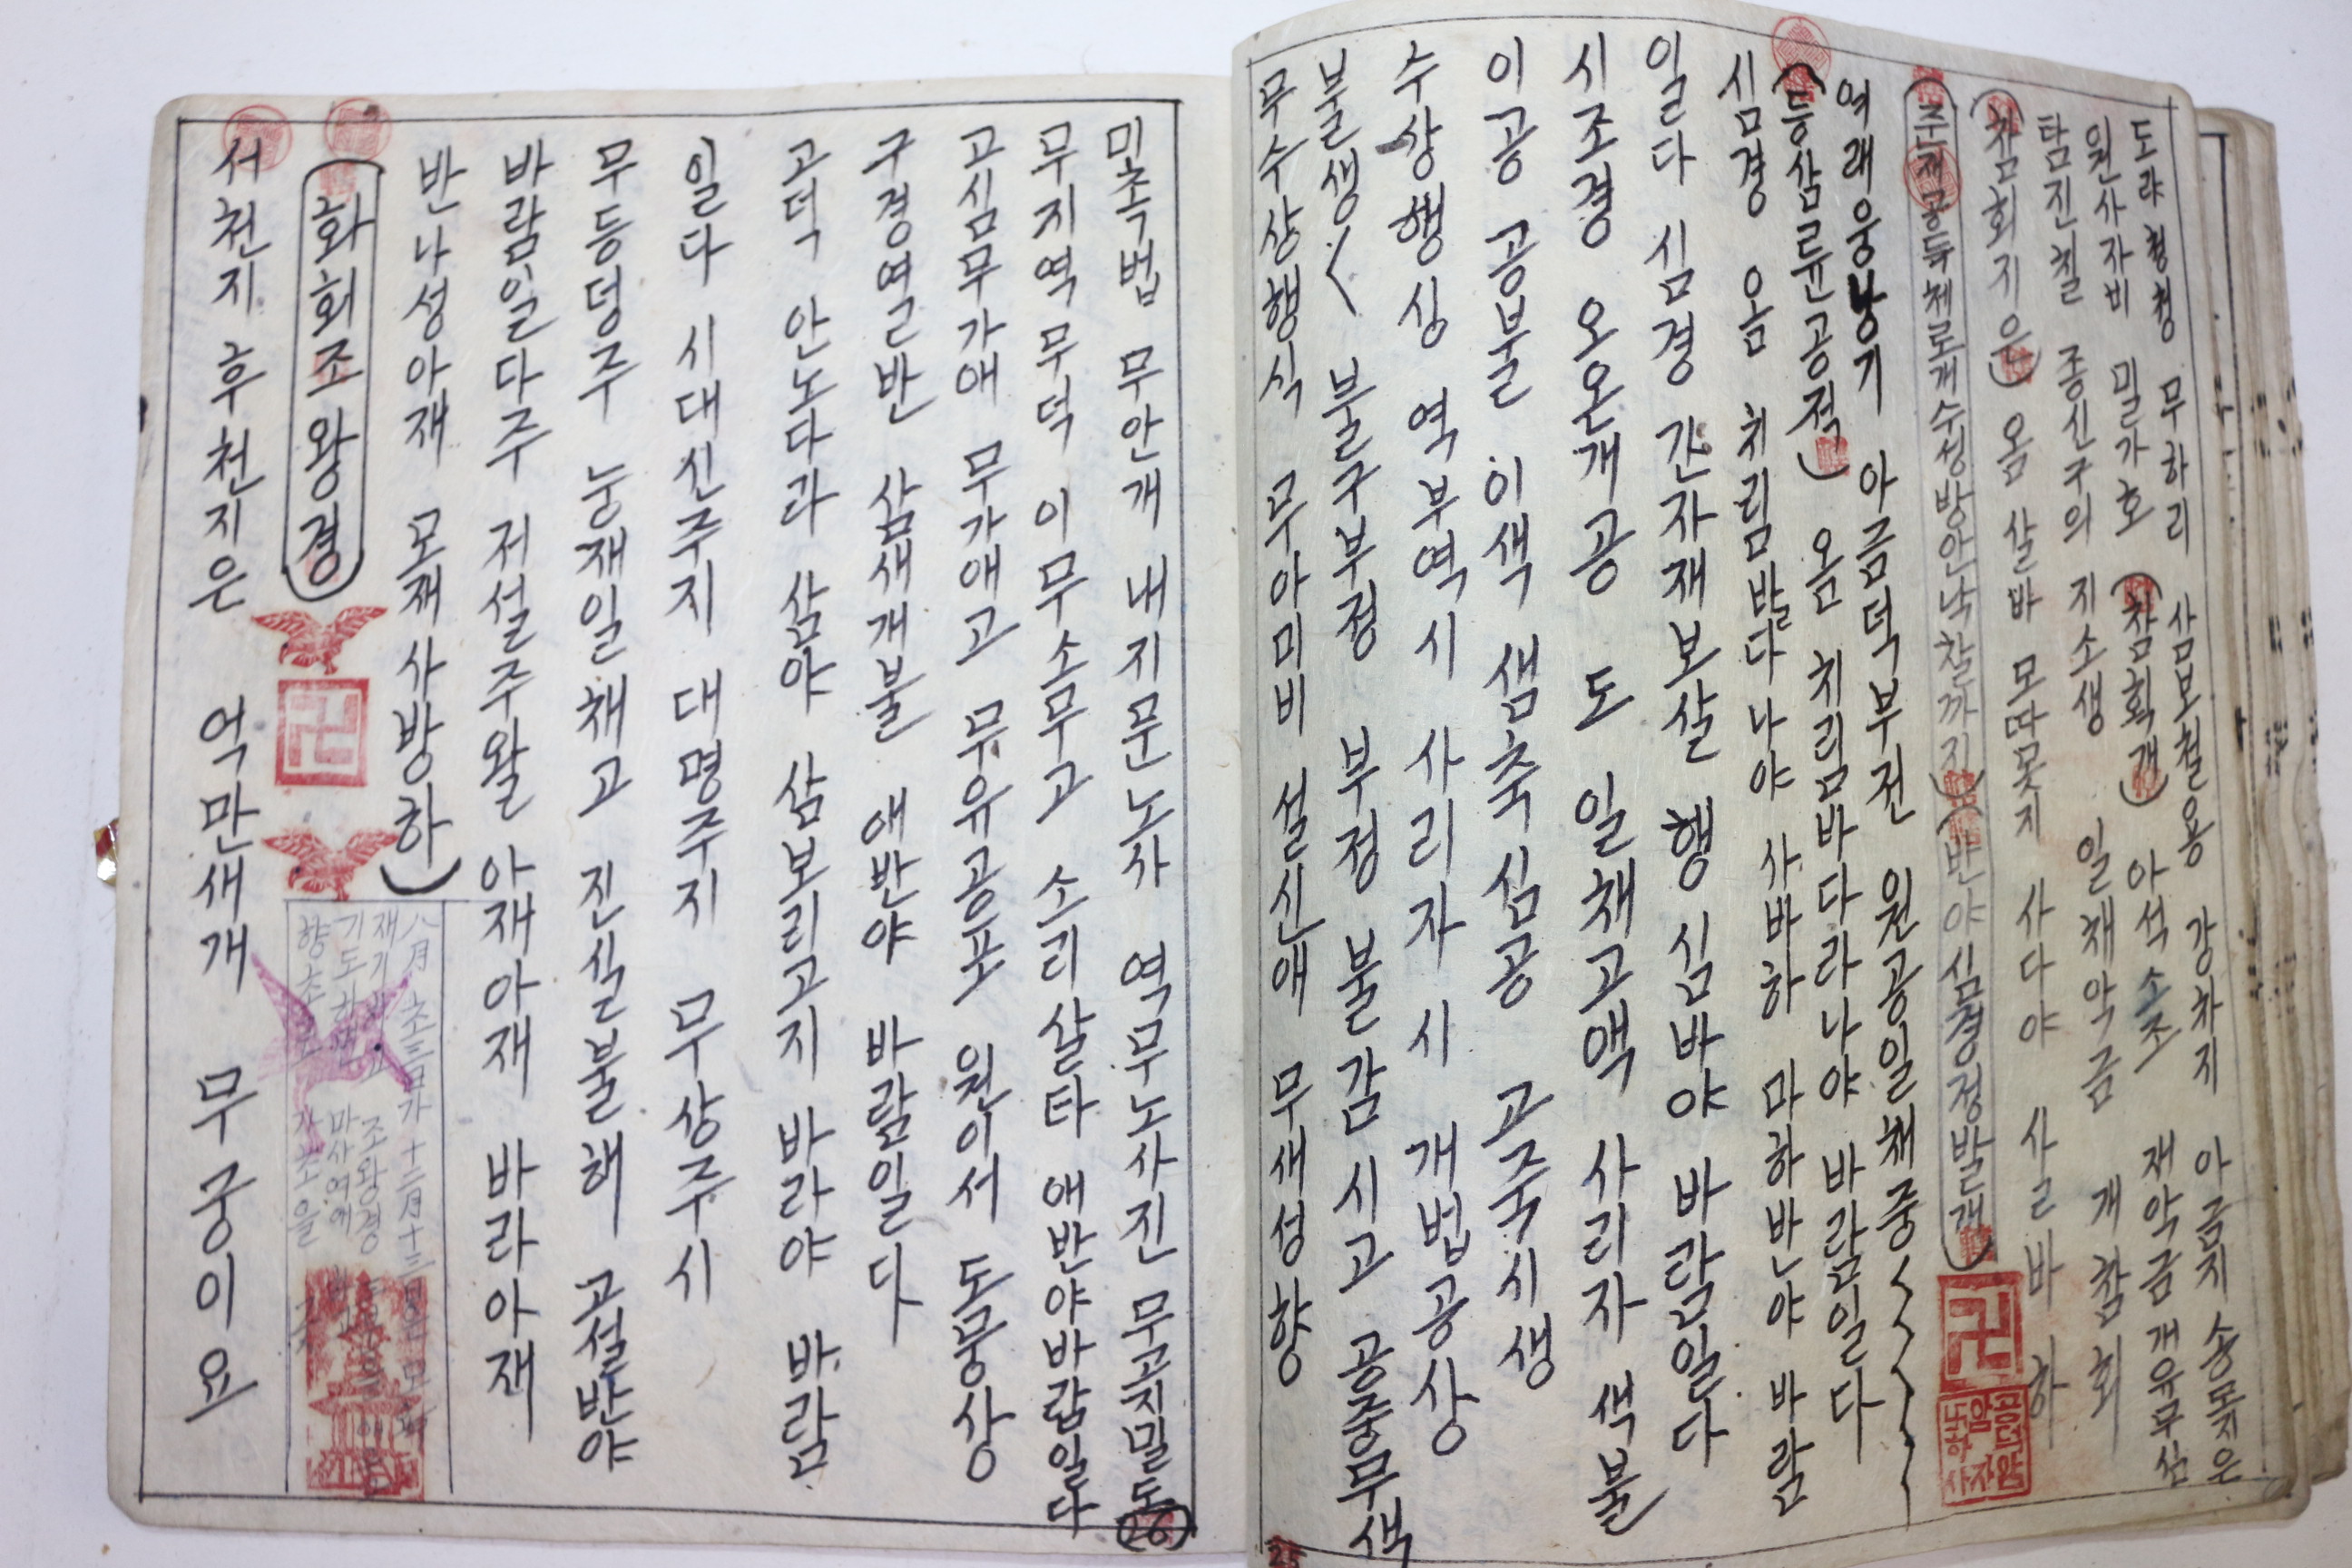 도량 청청 무하리 삼보철용 강차지 아금지 송묘지은
원사자비 밀가호 (참회개) 아석소조 재악금개유무심
탐진칠 종신구의 지소생 일채악금 개참회
(참회지은) 옴 살바 모따못지 사다야 사르바하
수성방안낙찰까지) (반야심경정발개)
여래웅 기 아금덕부전 원공일채중
(등삼륜공적) 옴 치림바다라나야 바람일다
심경 옴 치림발다나야 사바하 마하반야 바람
일다 심경 간자재보살 행심바야 바람일다
시조경 오온개공 도 일채고액 사리자 색불
이공 공불 이색 샘축심공 고죽시생
수상행싱 역부역시 사리자시 개법공상
불생 불구부정 부정 불감 시고 공중무색
무수상행식 무아미비 설신애 무새성향
25
미촉법 무안개 내지무노사 역무노사진 무고지밀도
(26)
무지역무덕 이무소무고 소리살타 애반야바람일다
고심무가애 무가애고 무유공포 원이서 도몽상
구경열반 삼새개불 애반야 바람일다
고덕 안노다라 삼야 삼보리고지 바라야 바람
일다 시대신주지 대명주지 무상주시
무등덩주 눙재일채고 진실불해 고설반야
바람일다주 저설주왈 아재아재 바라아재
반나성아재 모재사방하)
(화회조왕경)
八月 초三
조왕경
서천지 후천지은 억만새개 무궁이요